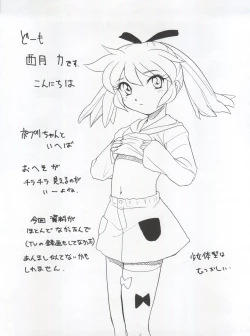 どーも
西月 力です。
こんにちは
ちゃんと
いへば
おへそが
チラチラ見えるのが
いーよね.
今回 資料が
ほとんどなかたんで
(TVの録画もしてなかた)
あんまし似てないかも
しれません.
少女体型は
むつかしい.